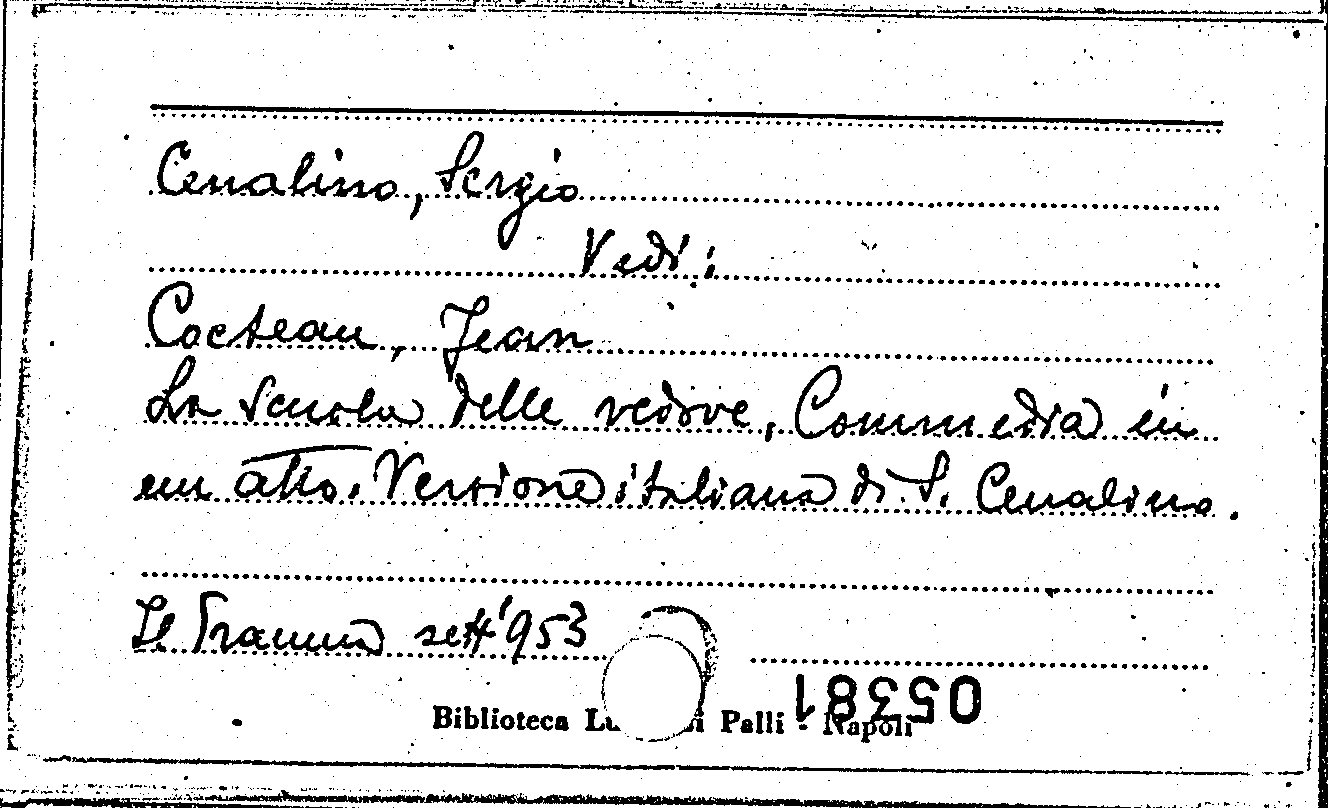 Cenalino, Sergio
Vedi:
Cocteau, Jean
La scuola delle vedove, Commedia in
un atto. Versione italiana di S. Cenalino.
Il Dramma sett '953
05381
Biblioteca Lu i Palli - Napoli